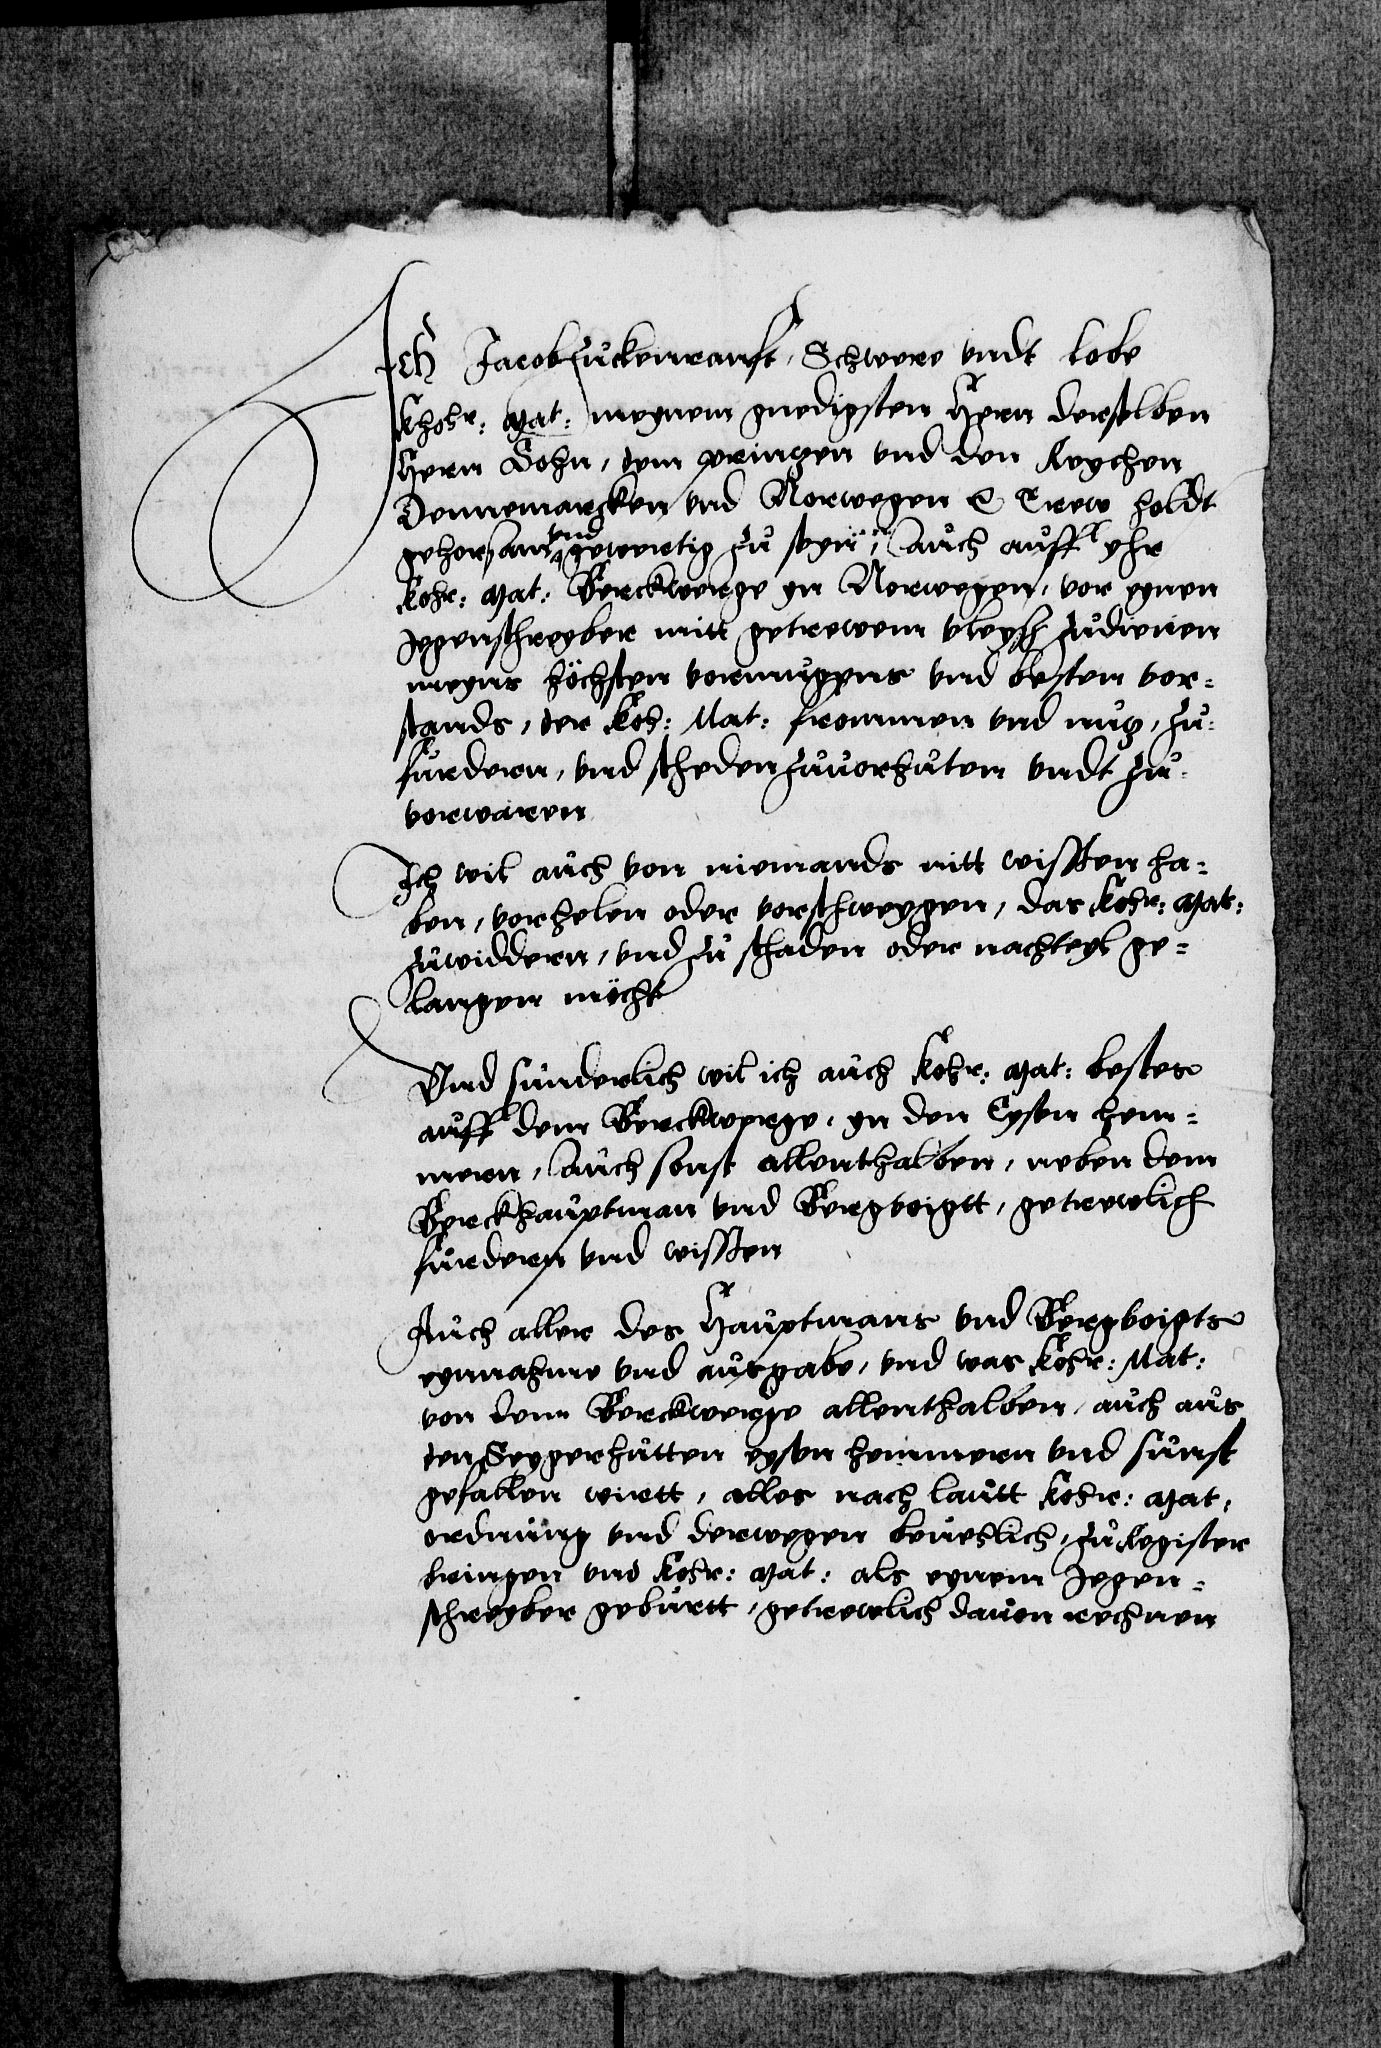 Ich Jacob Zuckenranft, Schwere vndt lobe
Khohr: Mat: meynem gnedigsten Hern derselben
Hern Sohn, dem printzen vnd den Reychen
Dennemargken vnd Norwegen &c Trew holdt
gehorsam vnd gewertig zu seyn, Auch auff yhr
Kohr: Mat: Berckwerge yn Norwegen, vor eynen
Jegenschreyber mitt getrewem vleyss zudienen
meyns höchsten vormugens vnd besten vor-
stands, der Koh: Mat: frommen vnd nutz, zu-
furdern, vnd scheden zuuorhuten vndt zu-
vorwaren
Ich wil auch von niemands mitt wissen ha-
ben, vorhelen oder vorschweygen, das Kohr: Mat:
zuwiddern, vnd zu schaden oder nachteyl ge-
langen möcht
Vnd sunderlich wil ich auch Kohr: Mat: bestes
auff dem Berckwerge, yn den Eysen hem-
mern, Auch sonst allenthalben, neben dem
Berckhauptman vnd Bergvoigtt, getrewlich
furdern vnd wissen
Auch aller des Hauptmans vnd Bergvoigts
eynnahme vnd ausgabe, vnd was Kohr: Mat:
von dem Berckwerge allenthalben, auch aus
den Seygerhutten eysen hemmern vnd sunst
gefallen wirtt, alles nach lautt Kohr: Mat:
ordnung vnd derwegen beuehlich, zu Register
bringen vnd Kohr: Mat: als eynem Jegen-
schreyber geburtt, getrewlich dauon rechnen